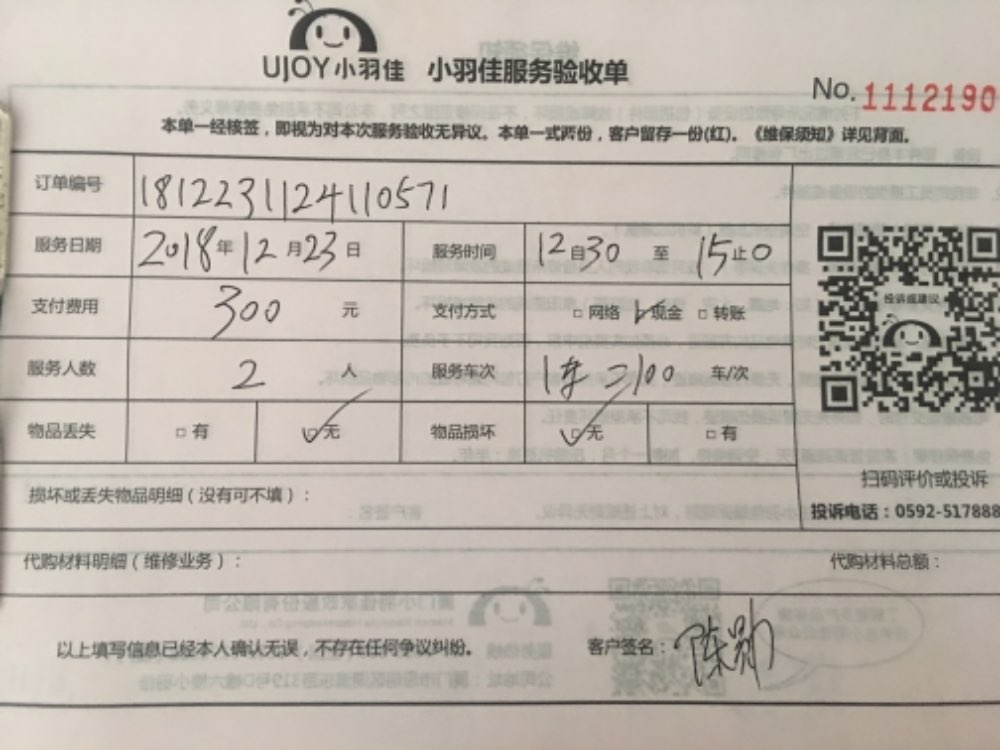 UJOY小羽佳 小羽佳服务验收单
No. 1112190
本单一经核签，即视为对本次服务验收无异议。本单一式两份，客户留存一份(红)。《维保须知》详见背面。
订单编号 1812231124110571
服务日期 2018年12月23日 服务时间 12自30至15止0
支付费用 300 元 支付方式 □网络 ☑现金 □转账
服务人数 2 人 服务车次 1车 100 车/次
物品丢失 □有 ☑无 物品损坏 ☑无 □有
投诉或建议
扫码评价或投诉
损坏或丢失物品明细（没有可不填）：
投诉电话：0592-517888
代购材料明细（维修业务）： 代购材料总额：
以上填写信息已经本人确认无误，不存在任何争议纠纷。 客户签名：陈勋